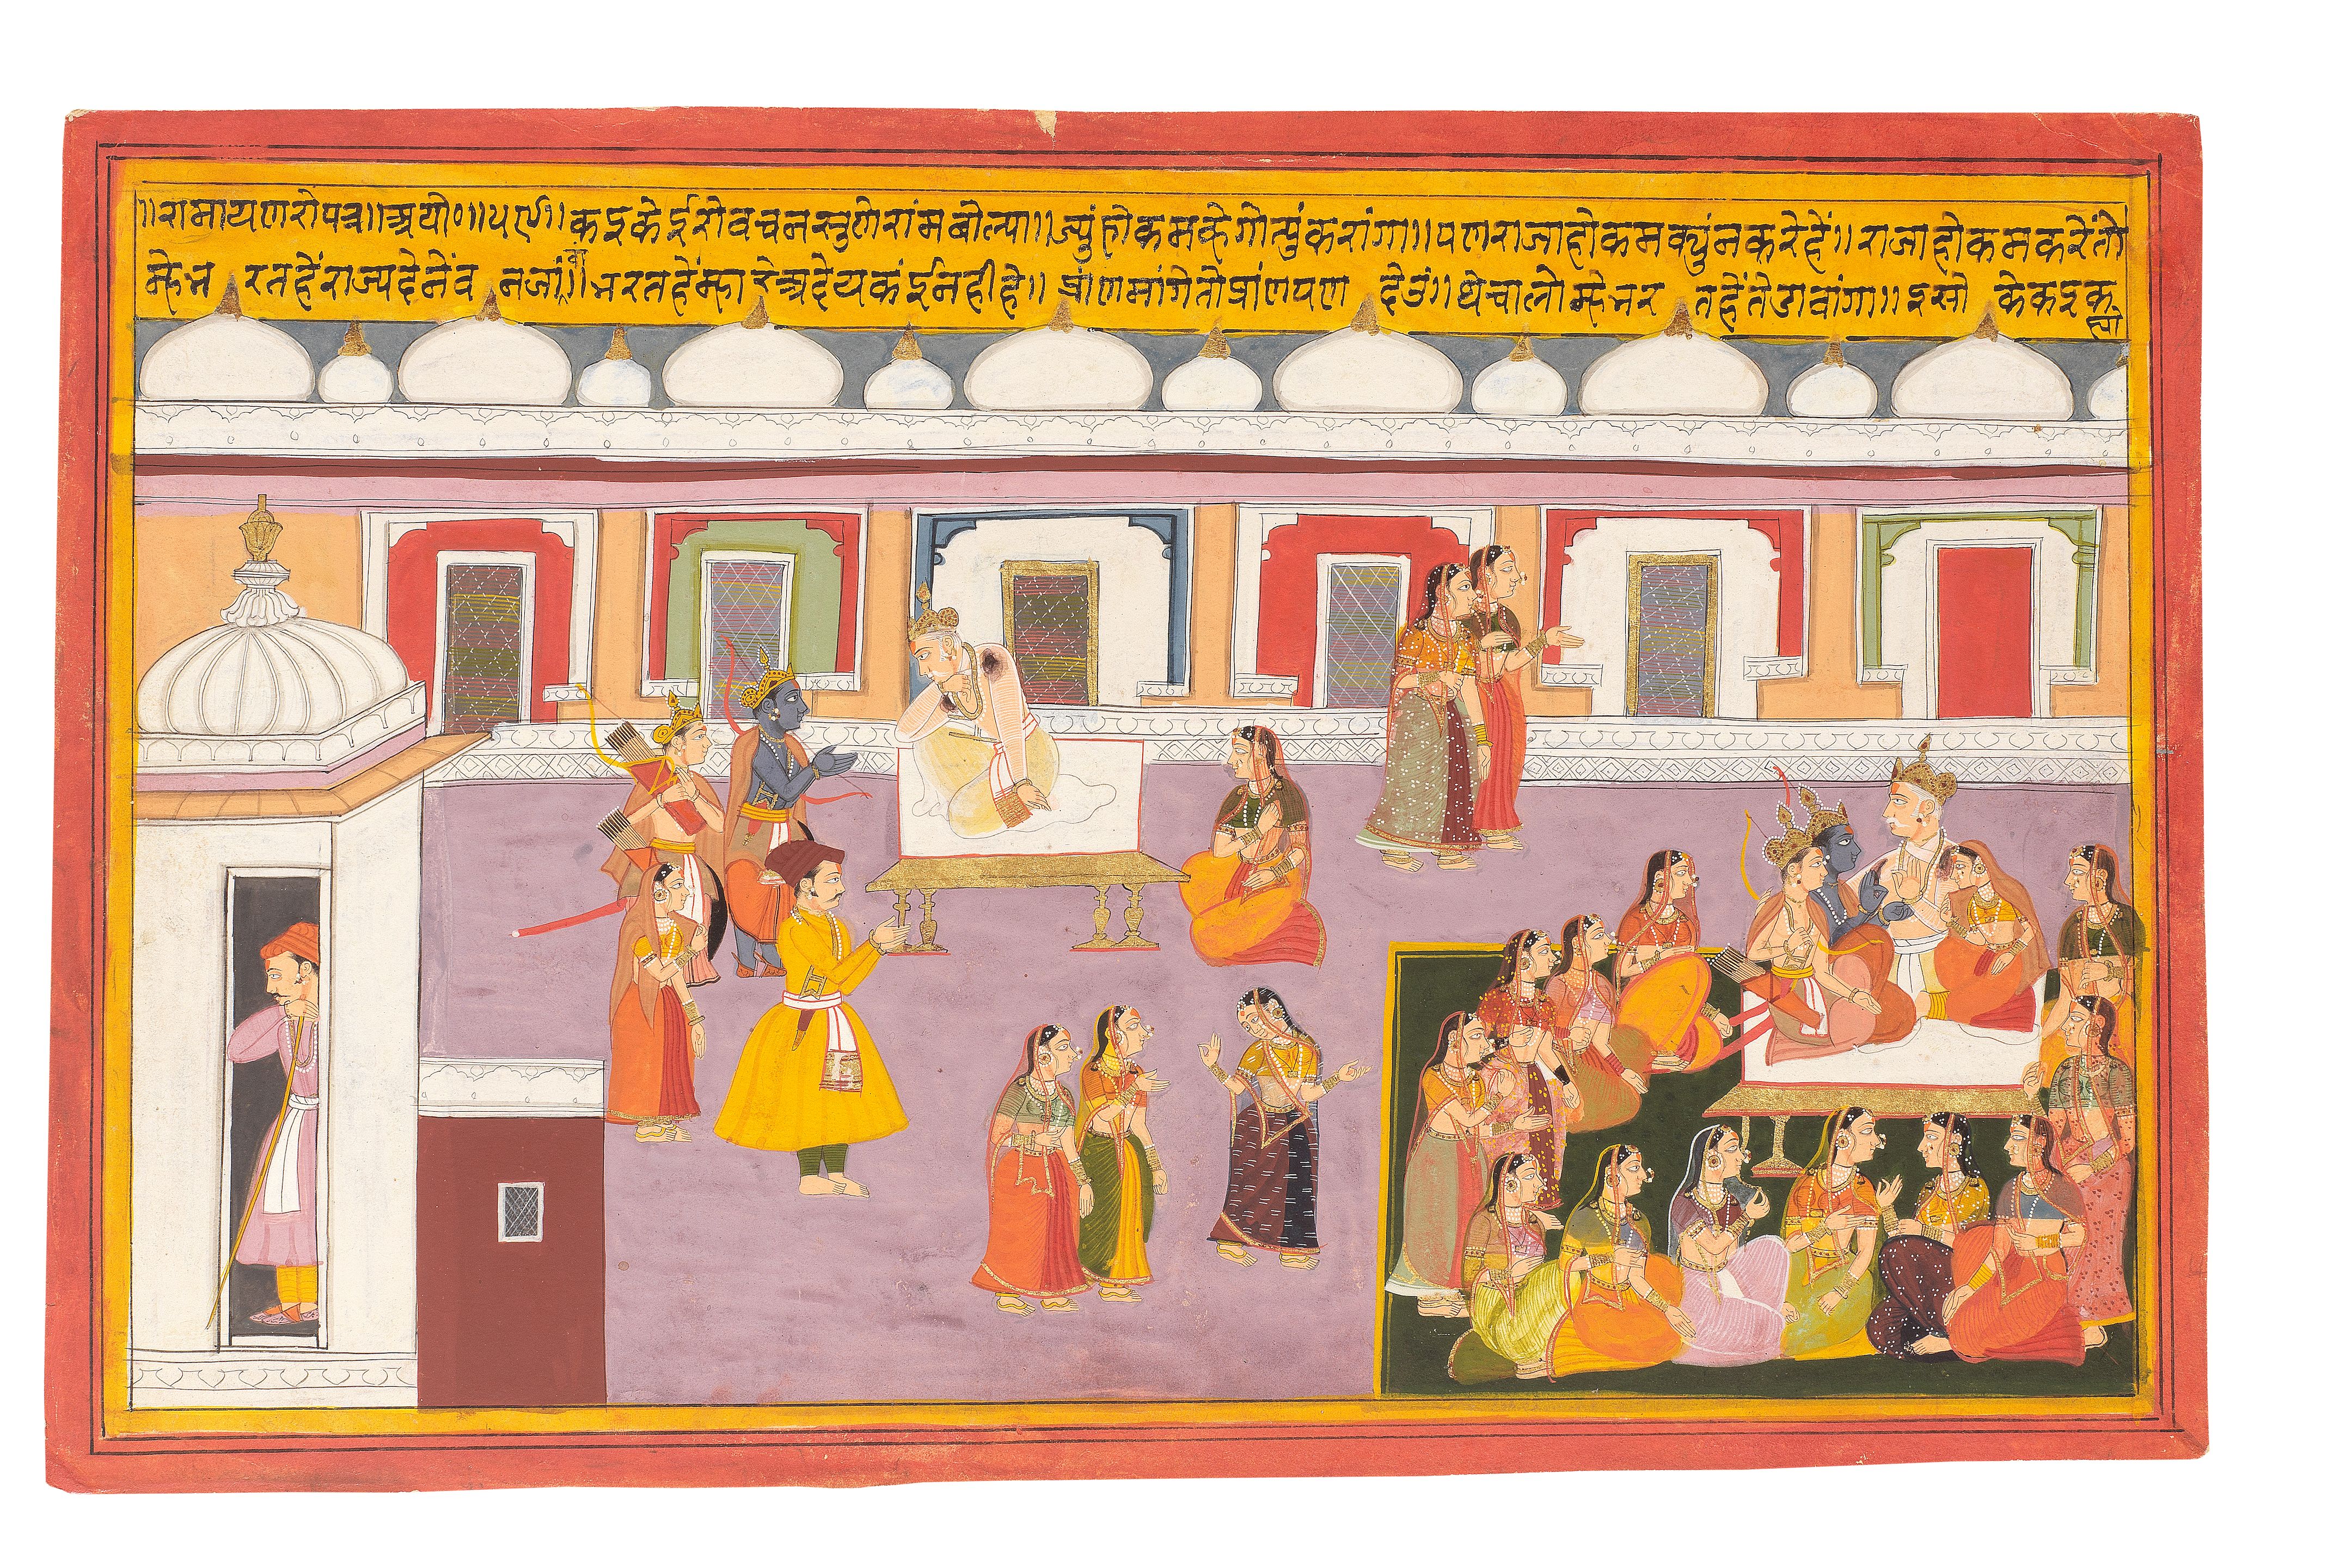 ॥रामायणरोपत्र॥अयो०॥५ए॥कइकेईरोवचनसुणेरांमबोल्या॥ज्युंहोकमव्हेगोत्युंकरांगा॥पणराजाहोकमक्युंनकरेहें॥राजाहोकमकरेंतो
म्हेभरतहेंराज्यदेनेंवनजांवां॥भरतहेंम्हारेअदेयकंईनहीहे॥प्रांणमांगेतोप्रांणपणदेउं॥थेचालोम्हेभरतहेंतेडावांगा॥इसोकेकइकह्यो